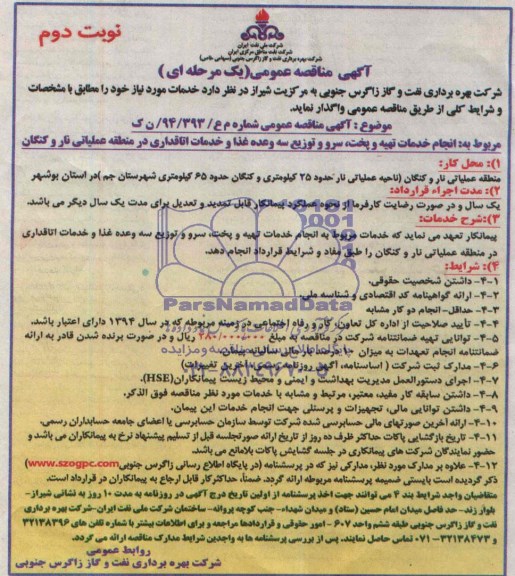 نوبت دوم
شرکت ملی نفت ایران
شرکت نفت مناطق مرکزی ایران
شرکت بهره برداری نفت و گاز زاگرس جنوبی (سهامی خاص)
آگهی مناقصه عمومی(یک مرحله ای )
شرکت بهره برداری نفت و گاز زاگرس جنوبی به مرکزیت شیراز در نظر دارد خدمات مورد نیاز خود را مطابق با مشخصات
و شرایط کلی از طریق مناقصه عمومی واگذار نماید.
موضوع : آگهی مناقصه عمومی شماره م ع/ ۹۴/۳۹۳/ ن ک
مربوط به: انجام خدمات تهیه و پخت، سرو و توزیع سه وعده غذا و خدمات اتاقداری در منطقه عملیاتی نار و کنگان
۱): محل کار:
منطقه عملیاتی نار و کنگان (ناحیه عملیاتی نار حدود ۲۵ کیلومتری و کنگان حدود ۶۵ کیلومتری شهرستان جم )در استان بوشهر
۲): مدت اجراء قرارداد:
یک سال و در صورت رضایت کارفرما از نحوه عملکرد پیمانکار قابل تمدید و تعدیل برای مدت یک سال دیگر می باشد.
۳):شرح خدمات:
پیمانکار تعهد می نماید که خدمات مربوط به انجام خدمات تهیه و پخت، سرو و توزیع سه وعده غذا و خدمات اتاقداری
در منطقه عملیاتی نار و کنگان را طبق مفاد و شرایط قرارداد انجام دهد.
۴): شرایط:
۴-۱- داشتن شخصیت حقوقی.
۴-۲- ارائه گواهینامه کد اقتصادی و شناسه ملی
ParsNamadData
۴-۳- حداقل- انجام دو کار مشابه
۴-۴- تأیید صلاحیت از اداره کل تعاون، کار و رفاه اجتماعی در زمینه مربوطه که در سال ۱۳۹۴ دارای اعتبار باشد.
۴-۵- توانایی تهیه ضمانتنامه شرکت در مناقصه به مبلغ ۲۸۰/۰۰۰/۰۰۰ ریال و در صورت برنده شدن قادر به ارائه
ضمانتنامه انجام تعهدات به میزان ۱۰ درصد بار مالی سالیانه پیمان
۴-۶- مدارک ثبت شرکت ( اساسنامه، آگهی روزنامه رسمی، آخرین تغییرات)
۴-۷- اجرای دستورالعمل مدیریت بهداشت و ایمنی و محیط زیست پیمانکاران(HSE).
۴-۸- داشتن سابقه کار مفید، معتبر، مرتبط و مشابه با خدمات مورد نظر مناقصه فوق الذکر.
۴-۹- داشتن توانایی مالی، تجهیزات و پرسنلی جهت انجام خدمات این پیمان.
۴-۱۰- ارائه آخرین صورتهای مالی حسابرسی شده شرکت توسط سازمان حسابرسی یا اعضای جامعه حسابداران رسمی.
۴-۱۱- تاریخ بازگشایی پاکات حداکثر ظرف ده روز از تاریخ ارائه صورتجلسه قبل از تسلیم پیشنهاد نرخ به پیمانکاران می باشد و
حضور نمایندگان شرکت های پیمانکاری در جلسه گشایش پاکات بلامانع می باشد.
۴-۱۲- علاوه بر مدارک مورد نظر، مدارکی نیز که در پرسشنامه (در پایگاه اطلاع رسانی زاگرس جنوبیwww.szogpc.com)
ذکر گردیده است بایستی ضمیمه پرسشنامه مربوطه ارائه گردد. ضمناً، حداکثر کار قابل ارجاع به پیمانکاران در قرارداد است.
متقاضیان واجد شرایط بند ۴ می توانند جهت اخذ پرسشنامه از اولین تاریخ درج آگهی در روزنامه به مدت ۱۰ روز به نشانی شیراز-
بلوار زند- حد فاصل میدان امام حسین (ستاد) و میدان شهداء- جنب کوچه پروانه- ساختمان شرکت ملی نفت ایران-شرکت بهره برداری
نفت و گاز زاگرس جنوبی طبقه ششم واحد ۶۰۷ - امور حقوقی و قراردادها مراجعه و برای اطلاعات بیشتر با شماره تلفن های ۳۲۱۳۸۳۹۶
و ۳۲۱۳۸۴۷۳-۰۷۱ تماس حاصل نمایند. پس از بررسی پرسشنامه ها به واجدین شرایط مدارک مناقصه ارائه می گردد.
روابط عمومی
شرکت بهره برداری نفت و گاز زاگرس جنوبی